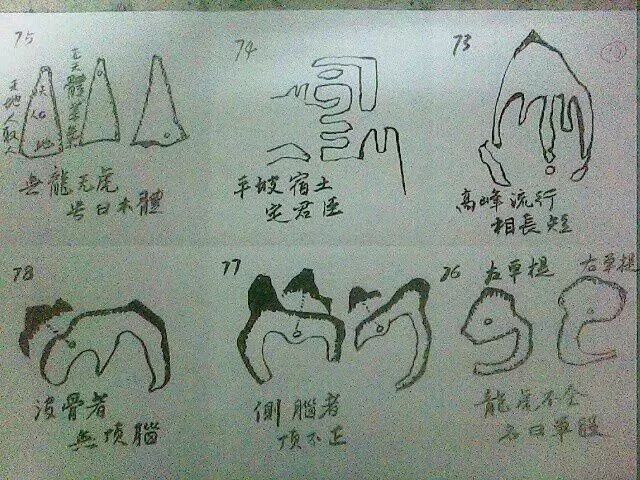 73
高峰流行
相長短
74
平坡宿土
定君臣
75
天
人
地
無龍无虎
号曰木體
76
左單提
右單提
龍虎不全
名曰單股
77
側腦者
頂不正
78
没骨者
無頂腦